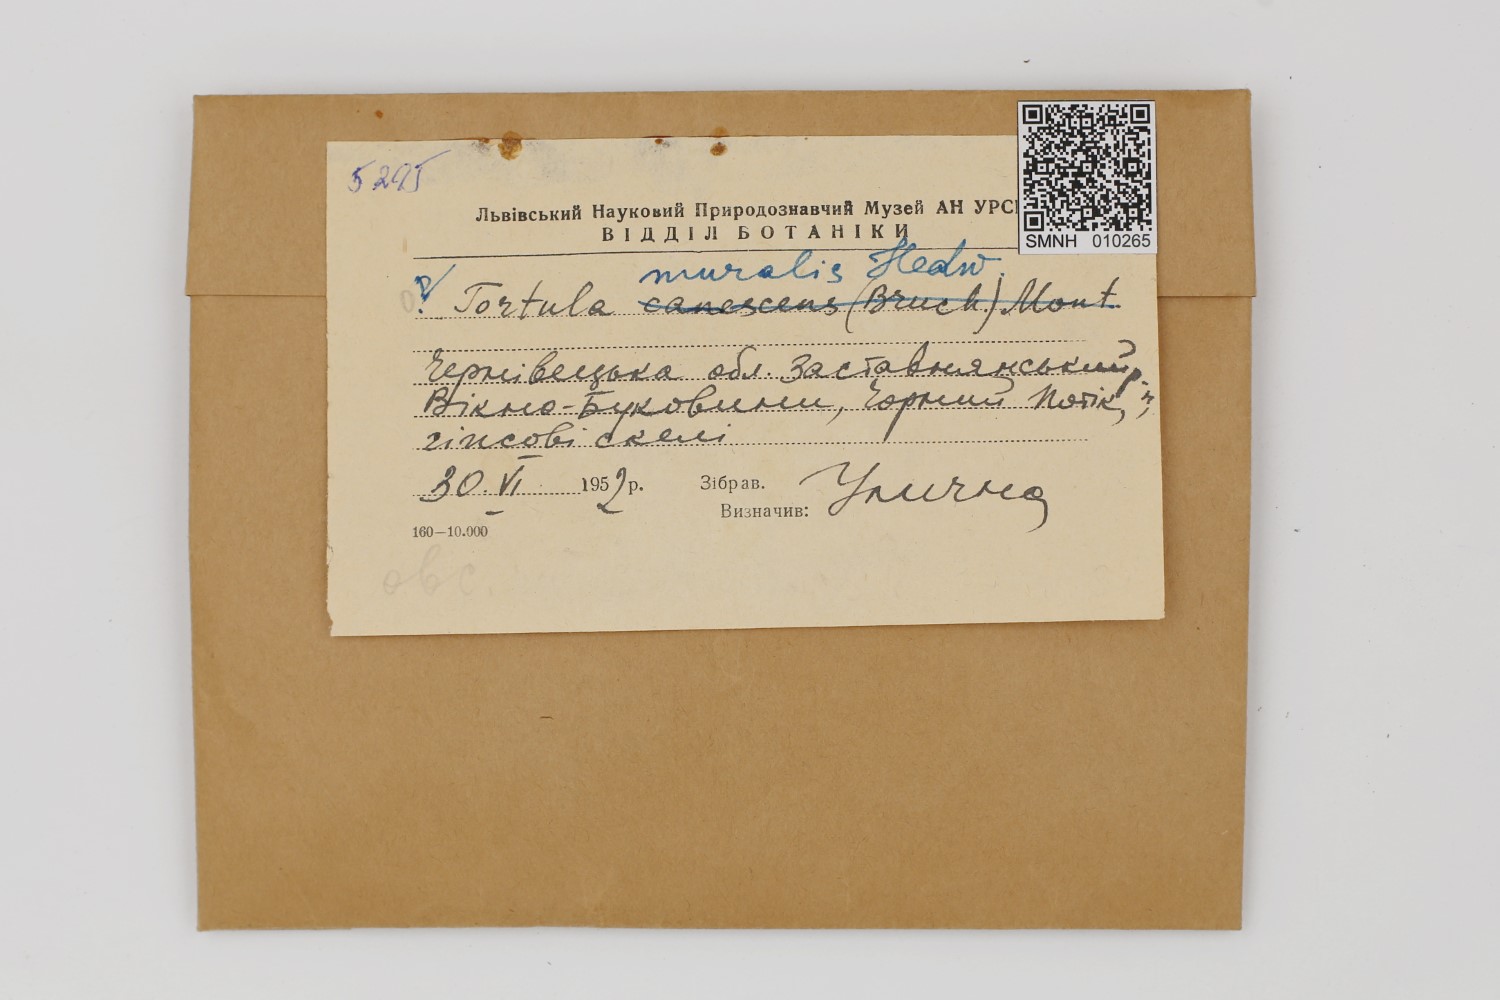 5295
Львівський Науковий Природознавчий Музей АН УРС
ВІДДІЛ БОТАНІКИ
SMNH 010265
muralis Hedw.
? Tortula canescens (Bruch.) Mont.
Чернівецька обл. Заставнянський р-н,
Вікно-Буковини, Чорний Потік,
гіпсові скелі
30.VI 1952 р. Зібрав. Улична
Визначив:
160—10.000